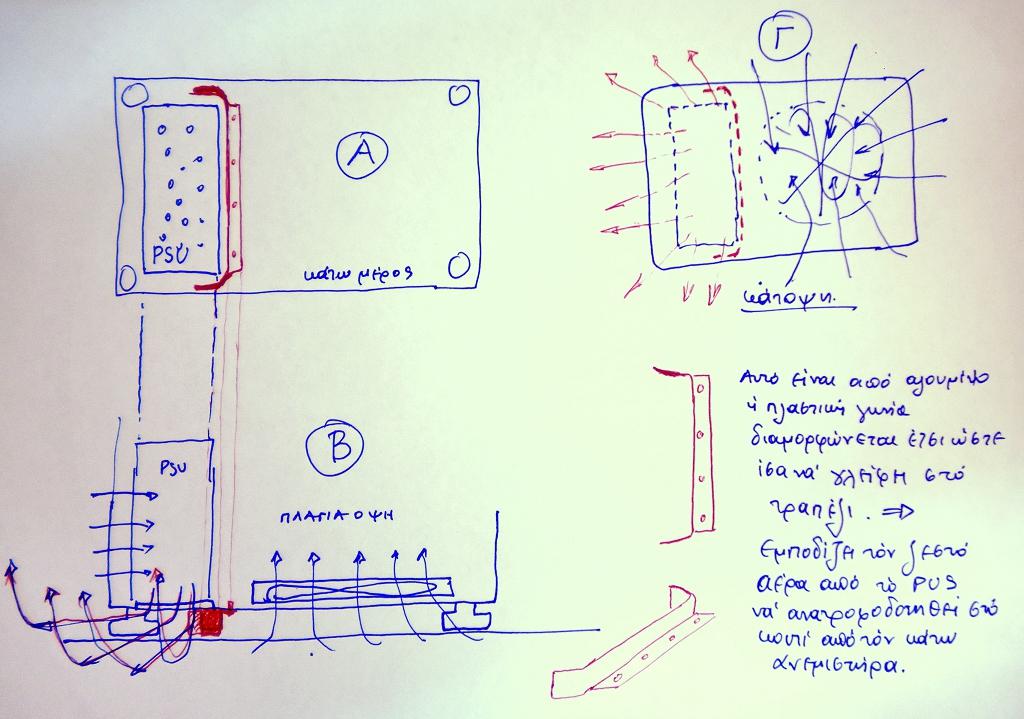 Α
PSU
κάτω μέρος
Γ
κάτοψη.
Β
PSU
ΠΛΑΓΙΑ ΟΨΗ
Αυτό είναι από αλουμίνιο
ή πλαστική γωνία
διαμορφώνεται έτσι ώστε
ίσα να γλείφη στό
τραπέζι. ⇒
Εμποδίζει τόν ζεστό
αέρα από τό PUS
νά ανατροφοδοτηθεί στό
κουτί από τόν κάτω
ανεμιστήρα.